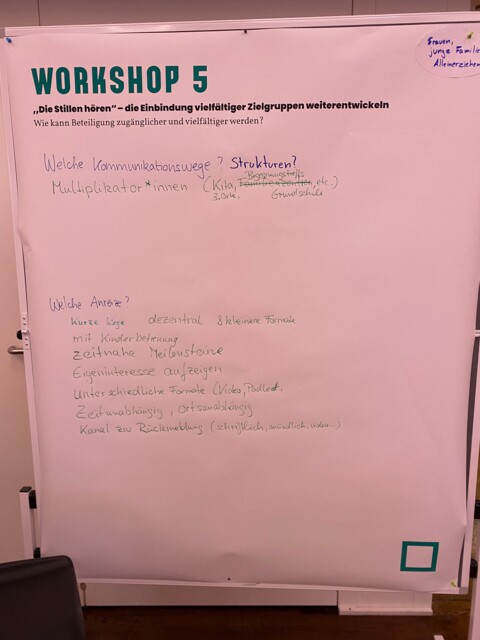 WORKSHOP 5
Frauen,
junge Familie
Alleinerziehen
„Die Stillen hören“ – die Einbindung vielfältiger Zielgruppen weiterentwickeln
Wie kann Beteiligung zugänglicher und vielfältiger werden?
Welche Kommunikationswege? Strukturen?
Begegnungstreffs
Multiplikator*innen (Kita, Familienzentren, etc.)
3. Orte, Grundschule
Welche Anreize?
kurze Wege dezentral & kleinere Formate
mit Kinderbetreuung
zeitnahe Meilensteine
Eigeninteresse aufzeigen
Unterschiedliche Formate (Video, Podcast,
Zeitunabhängig, ortsunabhängig
Kanal zur Rückmeldung (schriftlich, mündlich,